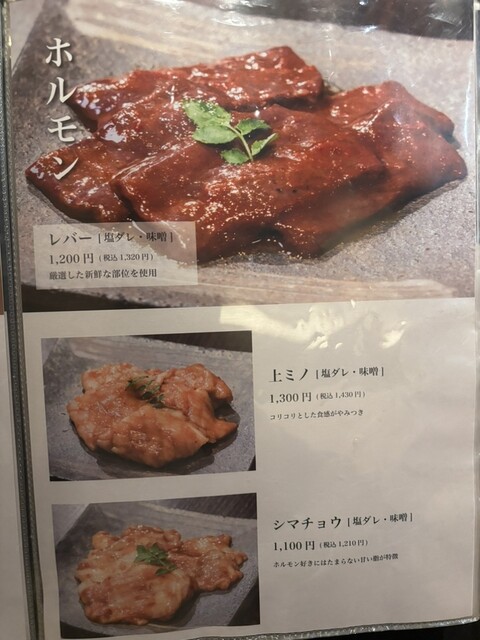 ホルモン
レバー [ 塩ダレ・味噌 ]
1,200円 (税込1,320円)
厳選した新鮮な部位を使用
上ミノ [ 塩ダレ・味噌 ]
1,300円 (税込1,430円)
コリコリとした食感がやみつき
シマチョウ [ 塩ダレ・味噌 ]
1,100円 (税込1,210円)
ホルモン好きにはたまらない甘い脂が特徴